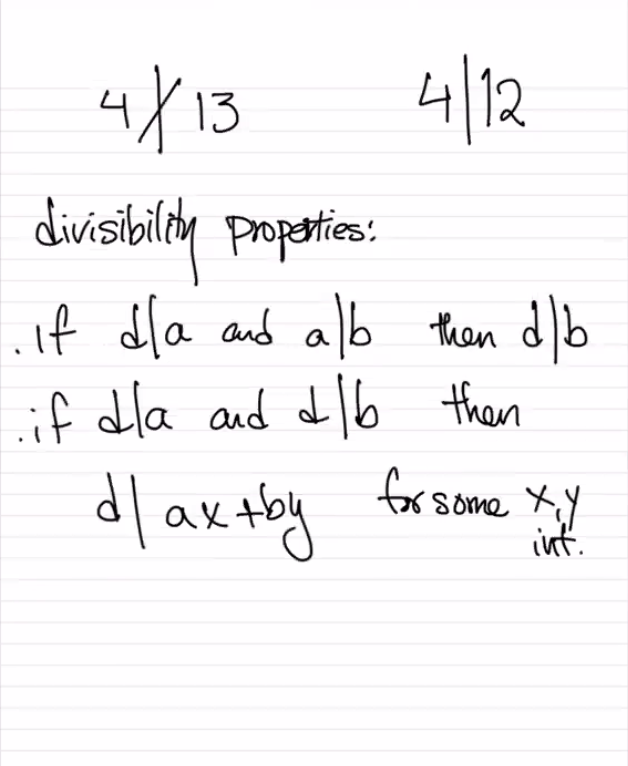 4∤13 4|12
divisibility properties:
.if d|a and a|b then d|b
.if d|a and d|b then
d| ax+by for some x,y
int.